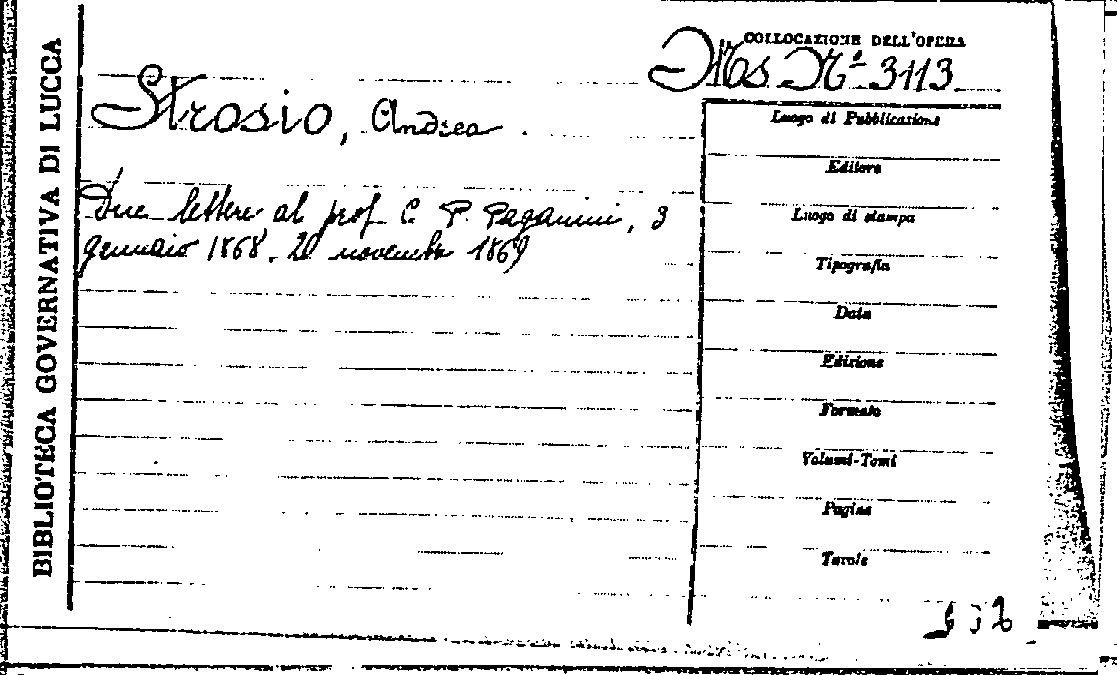 BIBLIOTECA GOVERNATIVA DI LUCCA
COLLOCAZIONE DELL'OPERA
Mss Nº 3113
Strosio, Andrea.
Due lettere al prof. C. P. Paganini, 3
gennaio 1868. 20 novembre 1869
Luogo di Pubblicazione
Editore
Luogo di stampa
Tipografia
Data
Edizione
Formato
Volumi-Tomi
Pagine
Tavole